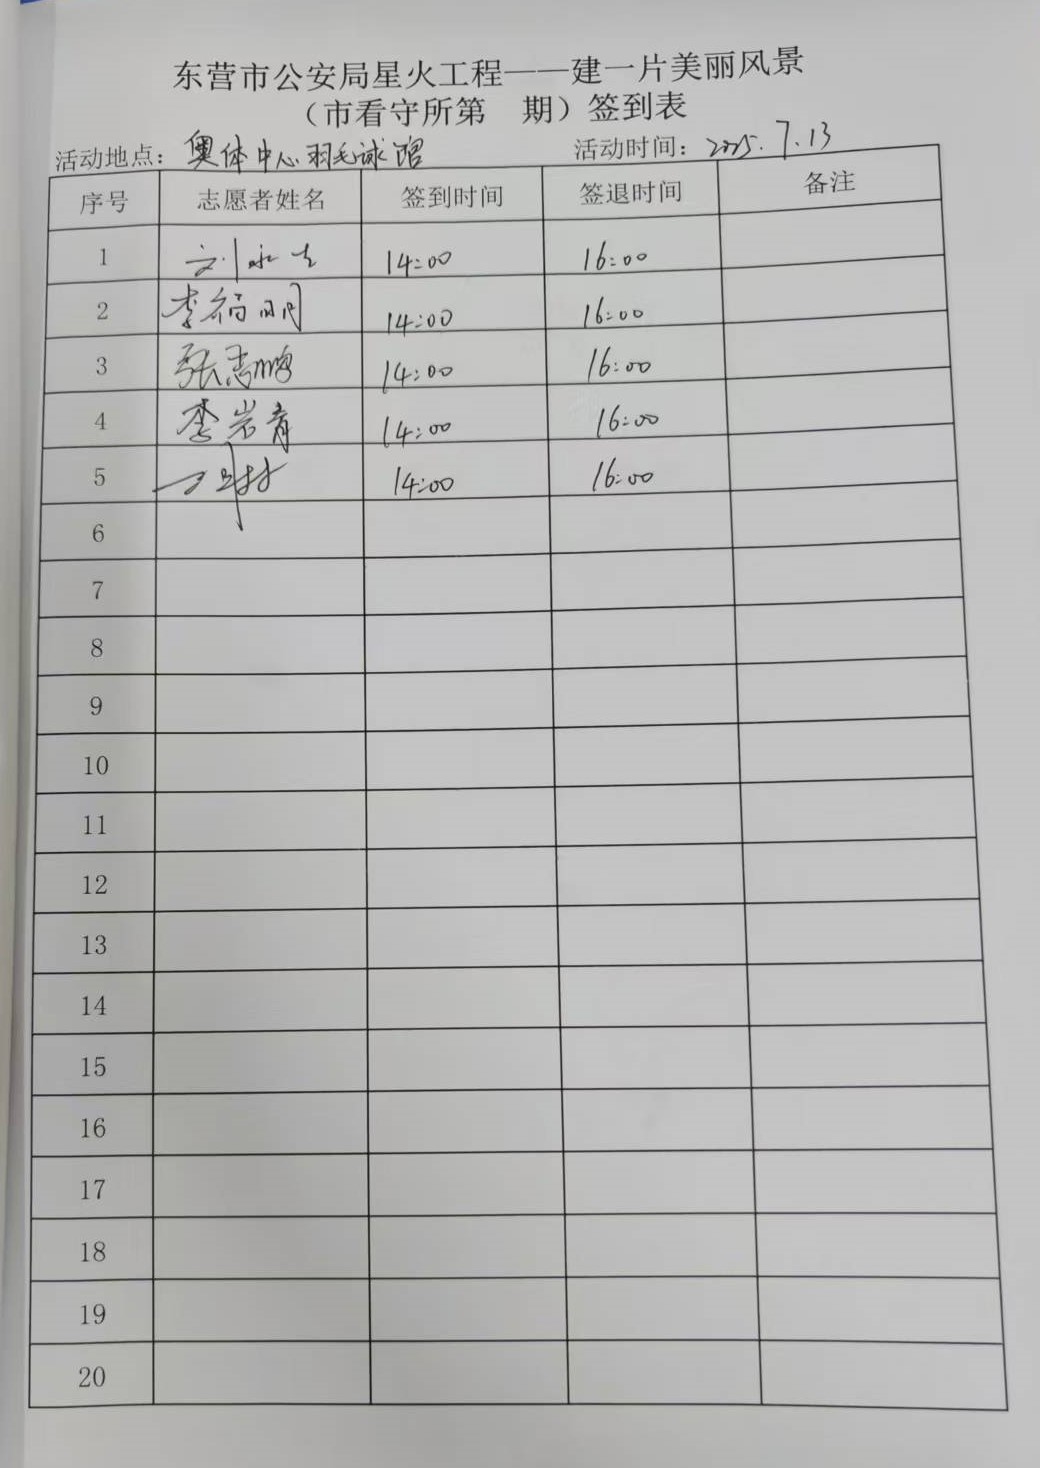 东营市公安局星火工程——建一片美丽风景
（市看守所第　期）签到表
活动地点：奥体中心羽毛球馆　活动时间：2025.7.13
序号 志愿者姓名 签到时间 签退时间 备注
1 刘永 14:00 16:00
2 李福明 14:00 16:00
3 张志鹏 14:00 16:00
4 李岩青 14:00 16:00
5 14:00 16:00
6
7
8
9
10
11
12
13
14
15
16
17
18
19
20